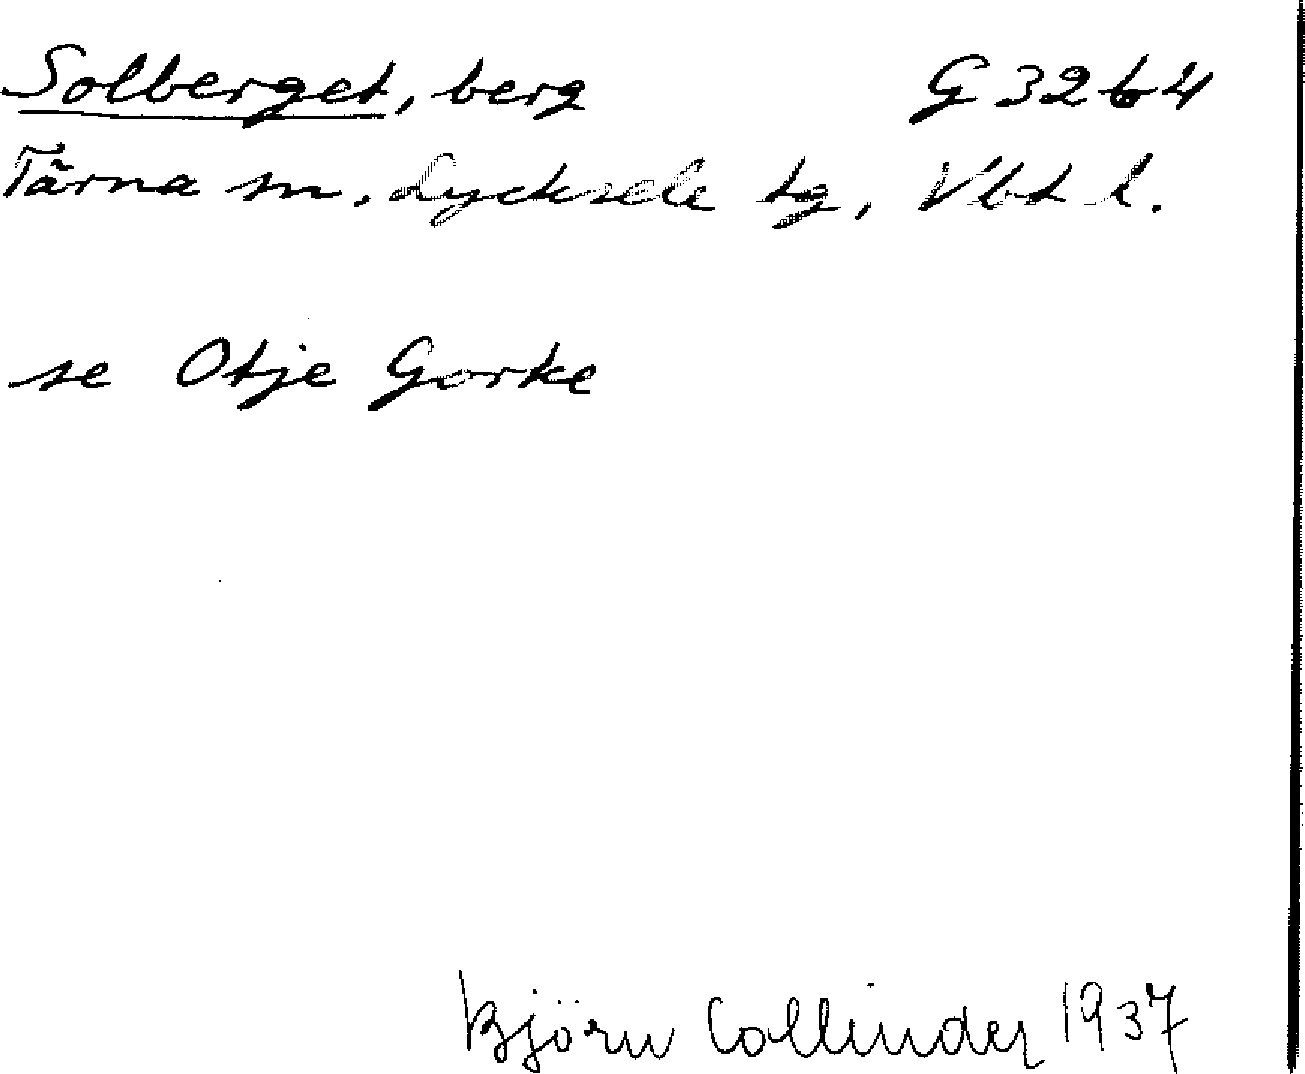 Solberget, berg G 32 b 4
Tärna sn. Lycksele lg, Vbt l.
se Otje Gorke
Björn Collinder 1937